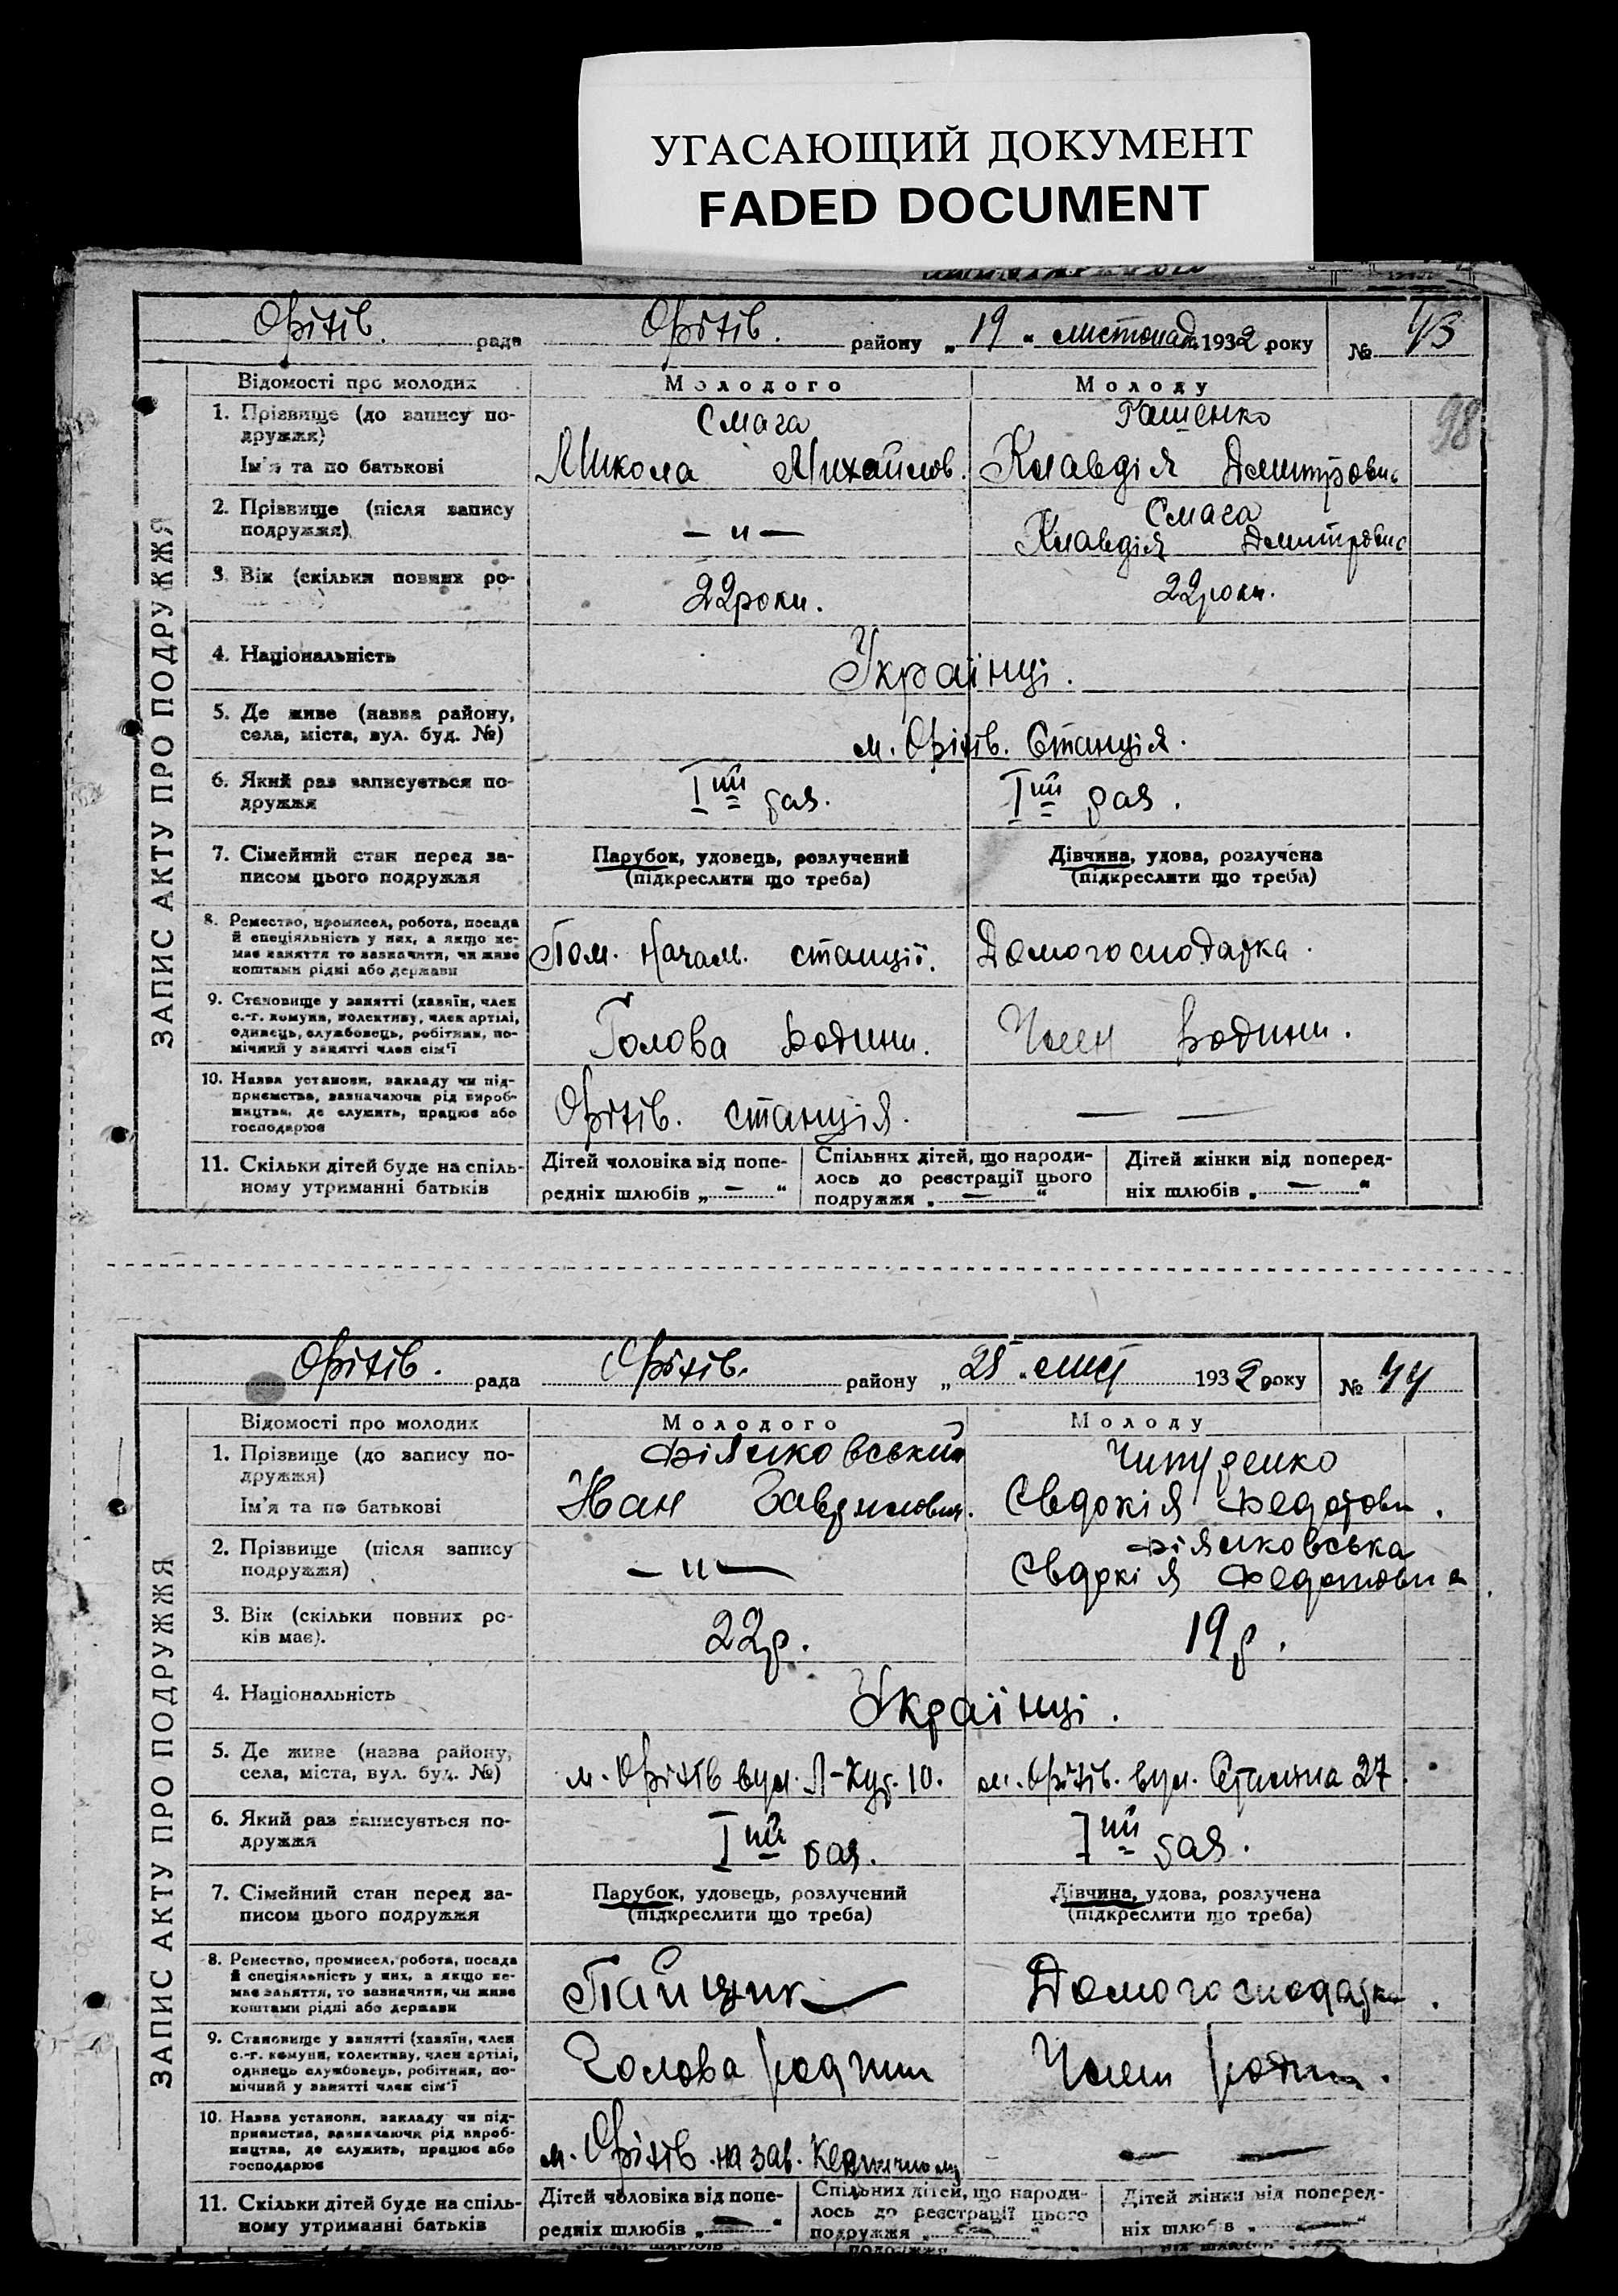 УГАСАЮЩИЙ ДОКУМЕНТ
FADED DOCUMENT
Оріхів. рада Оріхів. району „19“ листопад. 1932 року № 43
98
ЗАПИС АКТУ ПРО ПОДРУЖЖЯ
Відомості про молодих Молодого Молоду
1. Прізвище (до запису по- Смага Гащенко
дружжя)
Ім'я та по батькові Микола Михайлов. Клавдія Дмитровн
2. Прізвище (після запису Смага
подружжя) — „ — Клавдія Дмитровн
3. Вік (скільки повних ро- 22 роки. 22 роки.
4. Національність Українці.
5. Де живе (назва району, м. Оріхів. Станція.
села, міста, вул. буд. №)
6. Який раз записується по- Iий раз. Iий раз.
дружжя
7. Сімейний стан перед за- Парубок, удовець, розлучений Дівчина, удова, розлучена
писом цього подружжя (підкреслити що треба) (підкреслити що треба)
8. Ремество, промисел, робота, посада
й спеціяльність у них, а якщо не- Пом. Начал. станції. Домогосподарка.
має заняття то зазначити, чи живе
коштами рідні або держави
9. Становище у занятті (хазяїн, член
с.-г. комуни, колективу, член артілі, Голова родини. Член родини.
одинець, службовець, робітник, по-
мічний у занятті член сім'ї
10. Назва установи, закладу чи під-
приємства, зазначаючи рід вироб- Оріхів. станція. — —
ництва, де служить, працює або
господарює
11. Скільки дітей буде на спіль- Дітей чоловіка від попе- Спільних дітей, що народи- Дітей жінки від поперед-
ному утриманні батьків редніх шлюбів „ — “ лось до реєстрації цього ніх шлюбів „ — “
подружжя „ — “
Оріхів. рада Оріхів. району „25“ лист 1932 року № 44
ЗАПИС АКТУ ПРО ПОДРУЖЖЯ
Відомості про молодих Молодого Молоду
1. Прізвище (до запису по- Фіялковський
дружжя)
Ім'я та по батькові Іван Гаврилович. Євдокія Федотовн.
2. Прізвище (після запису Фіялковська
подружжя) — „ — Євдокія Федотовна
3. Вік (скільки повних ро- 22 р. 19 р.
ків має).
4. Національність Українці.
5. Де живе (назва району, м. Оріхів вул. Л-Хут. 10. м. Оріхів. вул. Сталіна 27.
села, міста, вул. буд. №)
6. Який раз записується по- Iий раз. Iий раз.
дружжя
7. Сімейний стан перед за- Парубок, удовець, розлучений Дівчина, удова, розлучена
писом цього подружжя (підкреслити що треба) (підкреслити що треба)
8. Ремество, промисел, робота, посада
й спеціяльність у них, а якщо не- Домогосподарка.
має заняття, то зазначити, чи живе
коштами рідні або держави
9. Становище у занятті (хазяїн, член
с.-г. комуни, колективу, член артілі, Голова родини Член родин.
одинець службовець, робітник, по-
мічний у занятті член сім'ї
10. Назва установи, закладу чи під-
приємства, зазначаючи рід вироб-
ництва, де служить, працює або м. Оріхів на зав. — —
господарює
11. Скільки дітей буде на спіль- Дітей чоловіка від попе- Спільних дітей, що народи- Дітей жінки від поперед-
ному утриманні батьків редніх шлюбів „ — “ лось до реєстрації цього ніх шлюбів „ — “
подружжя „ — “